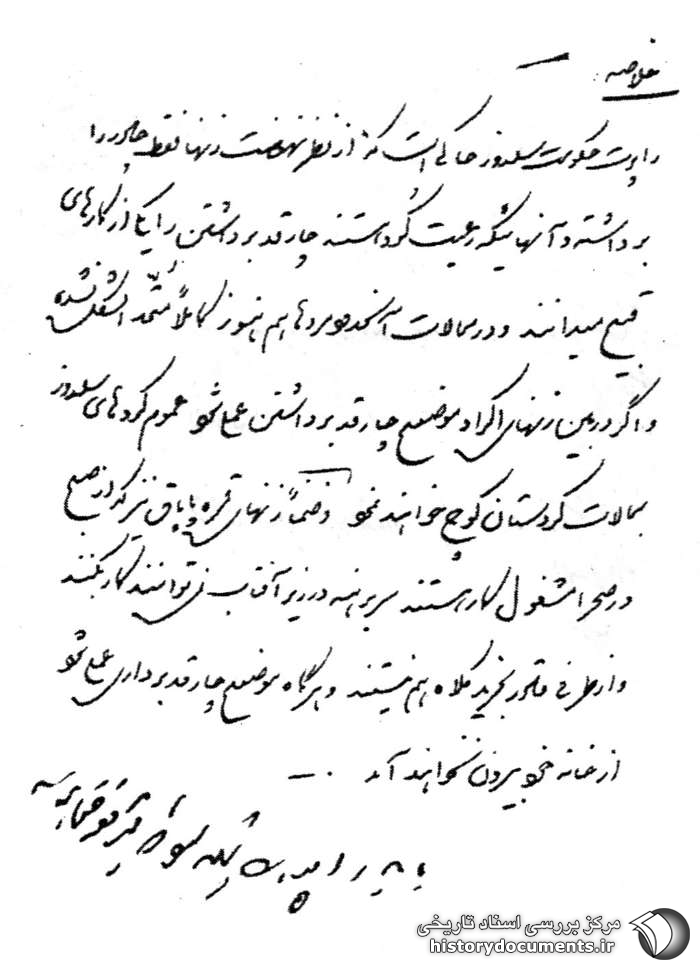 خلاصه :
راپرت حکومت سلدوز حاکی است که از نظر نهضت زنها فقط چادر را
برداشته و آنهائیکه رعیت کرد هستند چارقد برداشتن را یکی از کارهای
قبیح میدانند و در محالات مردها هم هنوز کاملاً متحد الشکل نشده
و اگر در بین زنهای اکراد موضوع چارقد برداشتن عملی شود عموم کردهای سلدوز
بمحالات کردستان کوچ خواهند نمود و ضمناً زنهای قره پاپاق نیز که از صبح
در صحرا مشغول کار هستند سربرهنه در زیر آفتاب نمی توانند کار بکنند
و از طرفی قادر بخرید کلاه هم نیستند و هرگاه موضوع چارقد برداری عملی شود
از خانه خود بیرون نخواهند آمد .
مرکز بررسی اسناد تاریخی
historydocuments.ir